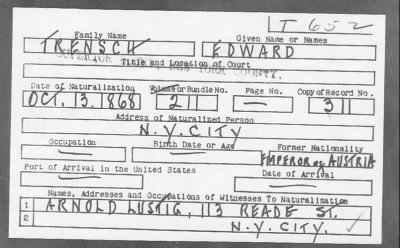 T 652
Family Name Given Name or Names
TRENSCH EDWARD
SUPERIOR NEW YORK COUNTY.
Title and Location of Court
Date of Naturalization Volume or Bundle No. Page No. Copy of Record No.
OCT. 13. 1868 211 — 311
Address of Naturalized Person
N.Y. CITY
Occupation Birth Date or Age Former Nationality
— — EMPEROR of AUSTRIA
Port of Arrival in the United States Date of Arrival
— —
Names, Addresses and Occupations of Witnesses To Naturalization
1 ARNOLD LUSTIG, 113 READE ST.
2 N.Y. CITY